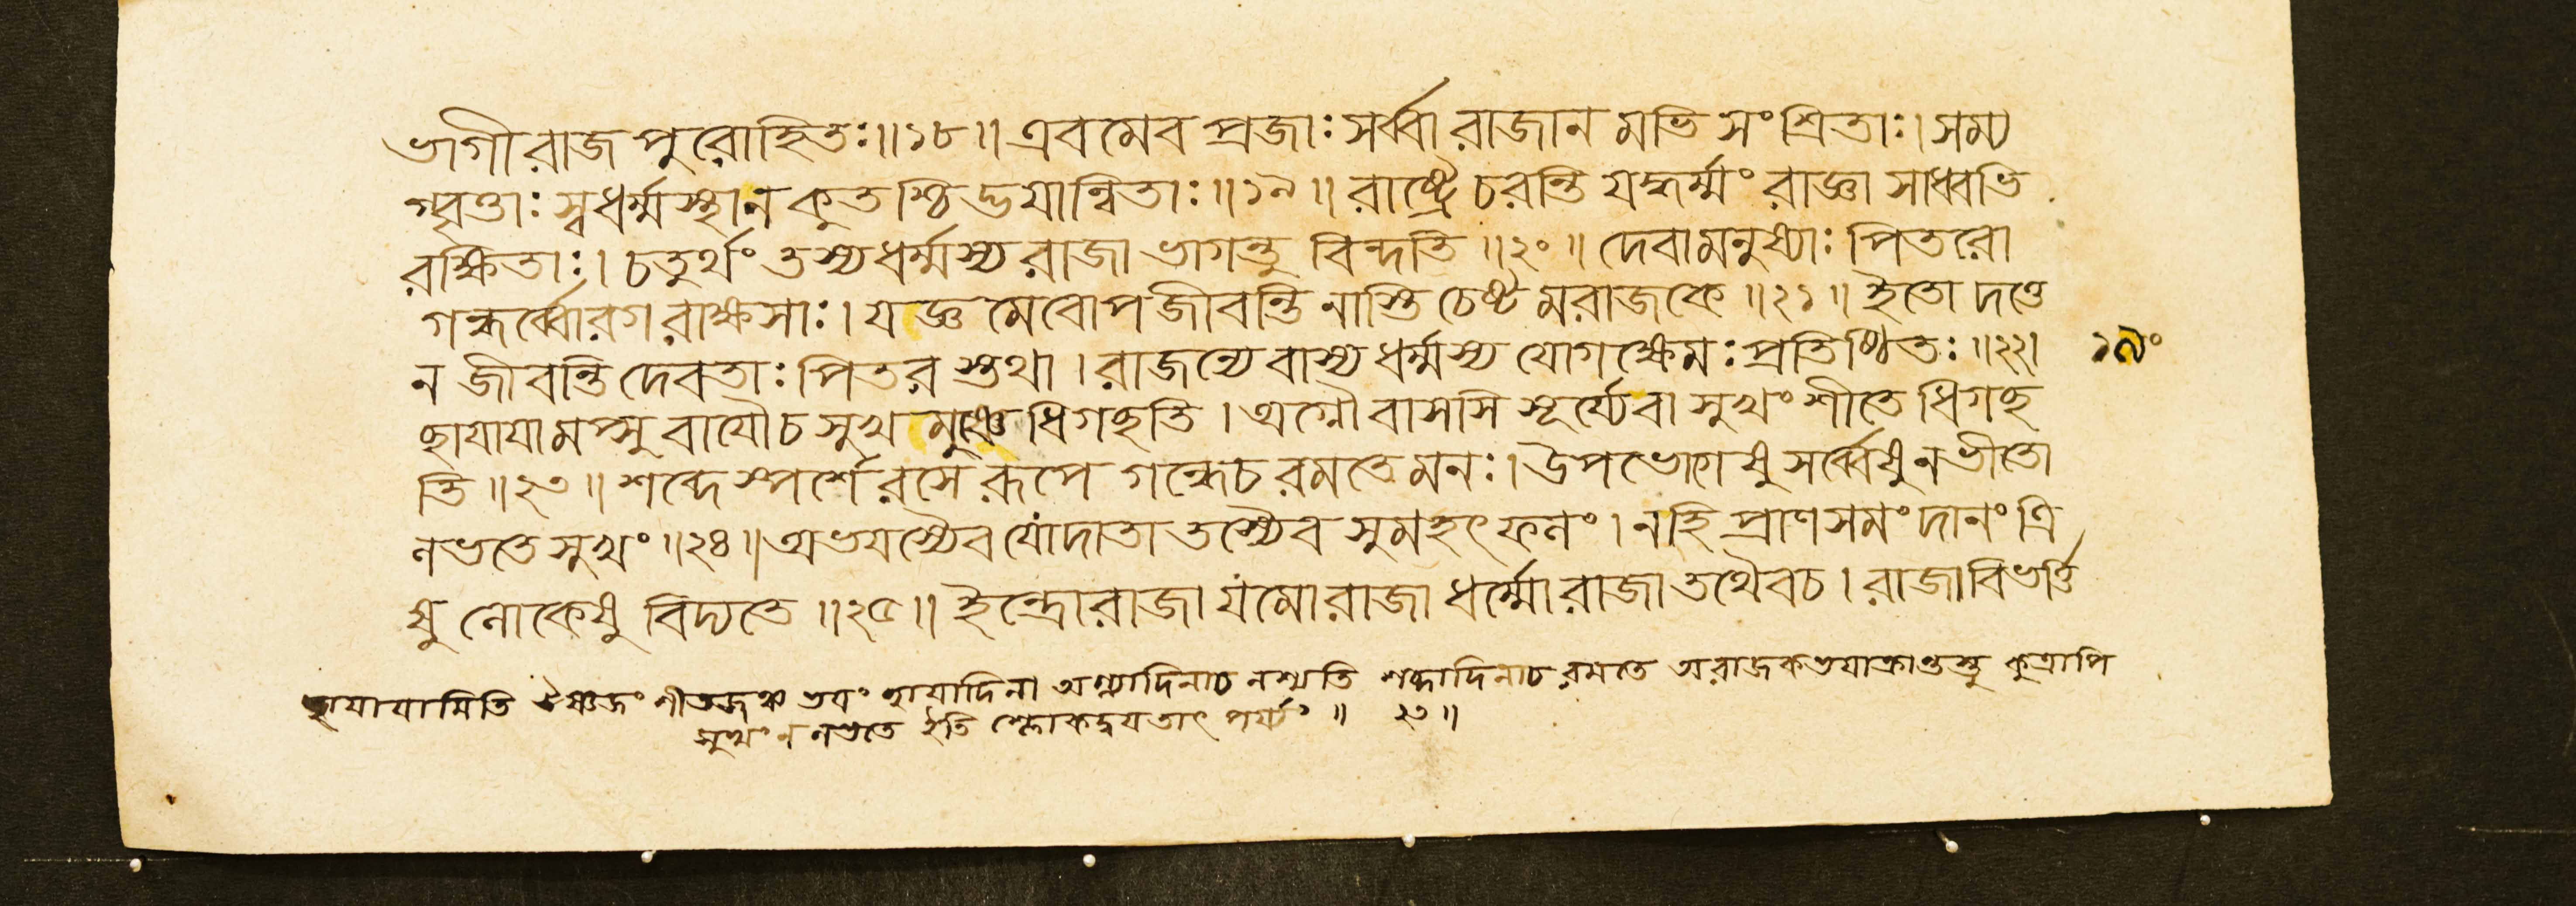 ভাগী রাজ পুরোহিতঃ॥১৮॥ এবমেব প্রজাঃ সর্ব্বা রাজান মভি সংশ্রিতাঃ। সম্য
গ্বৃত্তাঃ স্বধর্ম্মস্থা ন কুতশ্চিদ্ভয়ান্বিতাঃ॥১৯॥ রাষ্ট্রে চরন্তি যদ্ধর্ম্মং রাজ্ঞা সাধ্বভি
রক্ষিতাঃ। চতুর্থং তস্য ধর্ম্মস্য রাজা ভাগন্তু বিন্দতি॥২০॥ দেবা মনুষ্যাঃ পিতরো
গন্ধর্ব্বোরগ রাক্ষসাঃ। যজ্ঞ মেবোপজীবন্তি নাস্তি চেষ্ট মরাজকে॥২১॥ ইতো দত্তে
ন জীবন্তি দেবতাঃ পিতরস্তথা। রাজন্যেবাস্য ধর্ম্মস্য যোগক্ষেমঃ প্রতিষ্ঠিতঃ॥২২।
১৯০
ছায়ায়ামপ্সু বায়ৌ চ সুখ মুষ্ণেধিগছতি। অগ্নৌ বাসসি সূর্য্যে বা সুখং শীতেধিগছ
তি॥২৩॥ শব্দে স্পর্শে রসে রূপে গন্ধে চ রমতে মনঃ। উপভোগেষু সর্ব্বেষু ন ভীতো
লভতে সুখং॥২৪॥ অভয়স্যৈব যোদাতা তস্যৈব সুমহৎ ফলং। নহি প্রাণসমং দানং ত্রি
ষু লোকেষু বিদ্যতে॥২৫॥ ইন্দ্রো রাজা যমো রাজা ধর্ম্মো রাজা তথৈব চ। রাজা বিভর্ত্তি
ছায়ায়ামিতি ঔষ্ণ্যজং শীতজঞ্চ ভয়ং ছায়াদিনা অগ্ন্যাদিনাচ নশ্যতি শব্দাদিনাচ রমতে অরাজকভয়াক্রান্তস্তু কুত্রাপি
সুখং ন লভতে ইতি শ্লোকদ্বয়তাৎপর্য্যং॥ ২৩॥